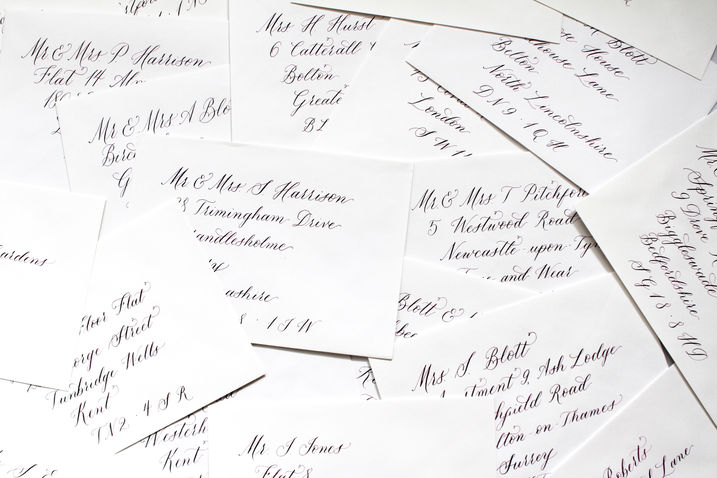 Mr & Mrs P Harrison
Flat 14
Mrs H Hurst
6 Catterall
Bolton
Greate
BL
London
SW1
Blott
House
house Lane
Belton
North Lincolnshire
DN9 · 1QH
Mr & Mrs A Blo
Mr & Mrs S Harrison
Trimingham Drive
andlesholme
ashire
1JW
Mr & Mrs T Pitchfor
5 Westwood Road
Newcastle upon Ty
and Wear
9 Drove
Biggleswade
Bedfordshire
SG18 · 8HD
ardens
Floor Flat
orge Street
Tunbridge Wells
Kent
TN2 · 4SR
Westerh
Kent
Blott &
Mrs S Blott
rtment 9, Ash Lodge
yfield Road
lton-on-Thames
Surrey
Mr J Jones
Flat 8
Roberts
Lane